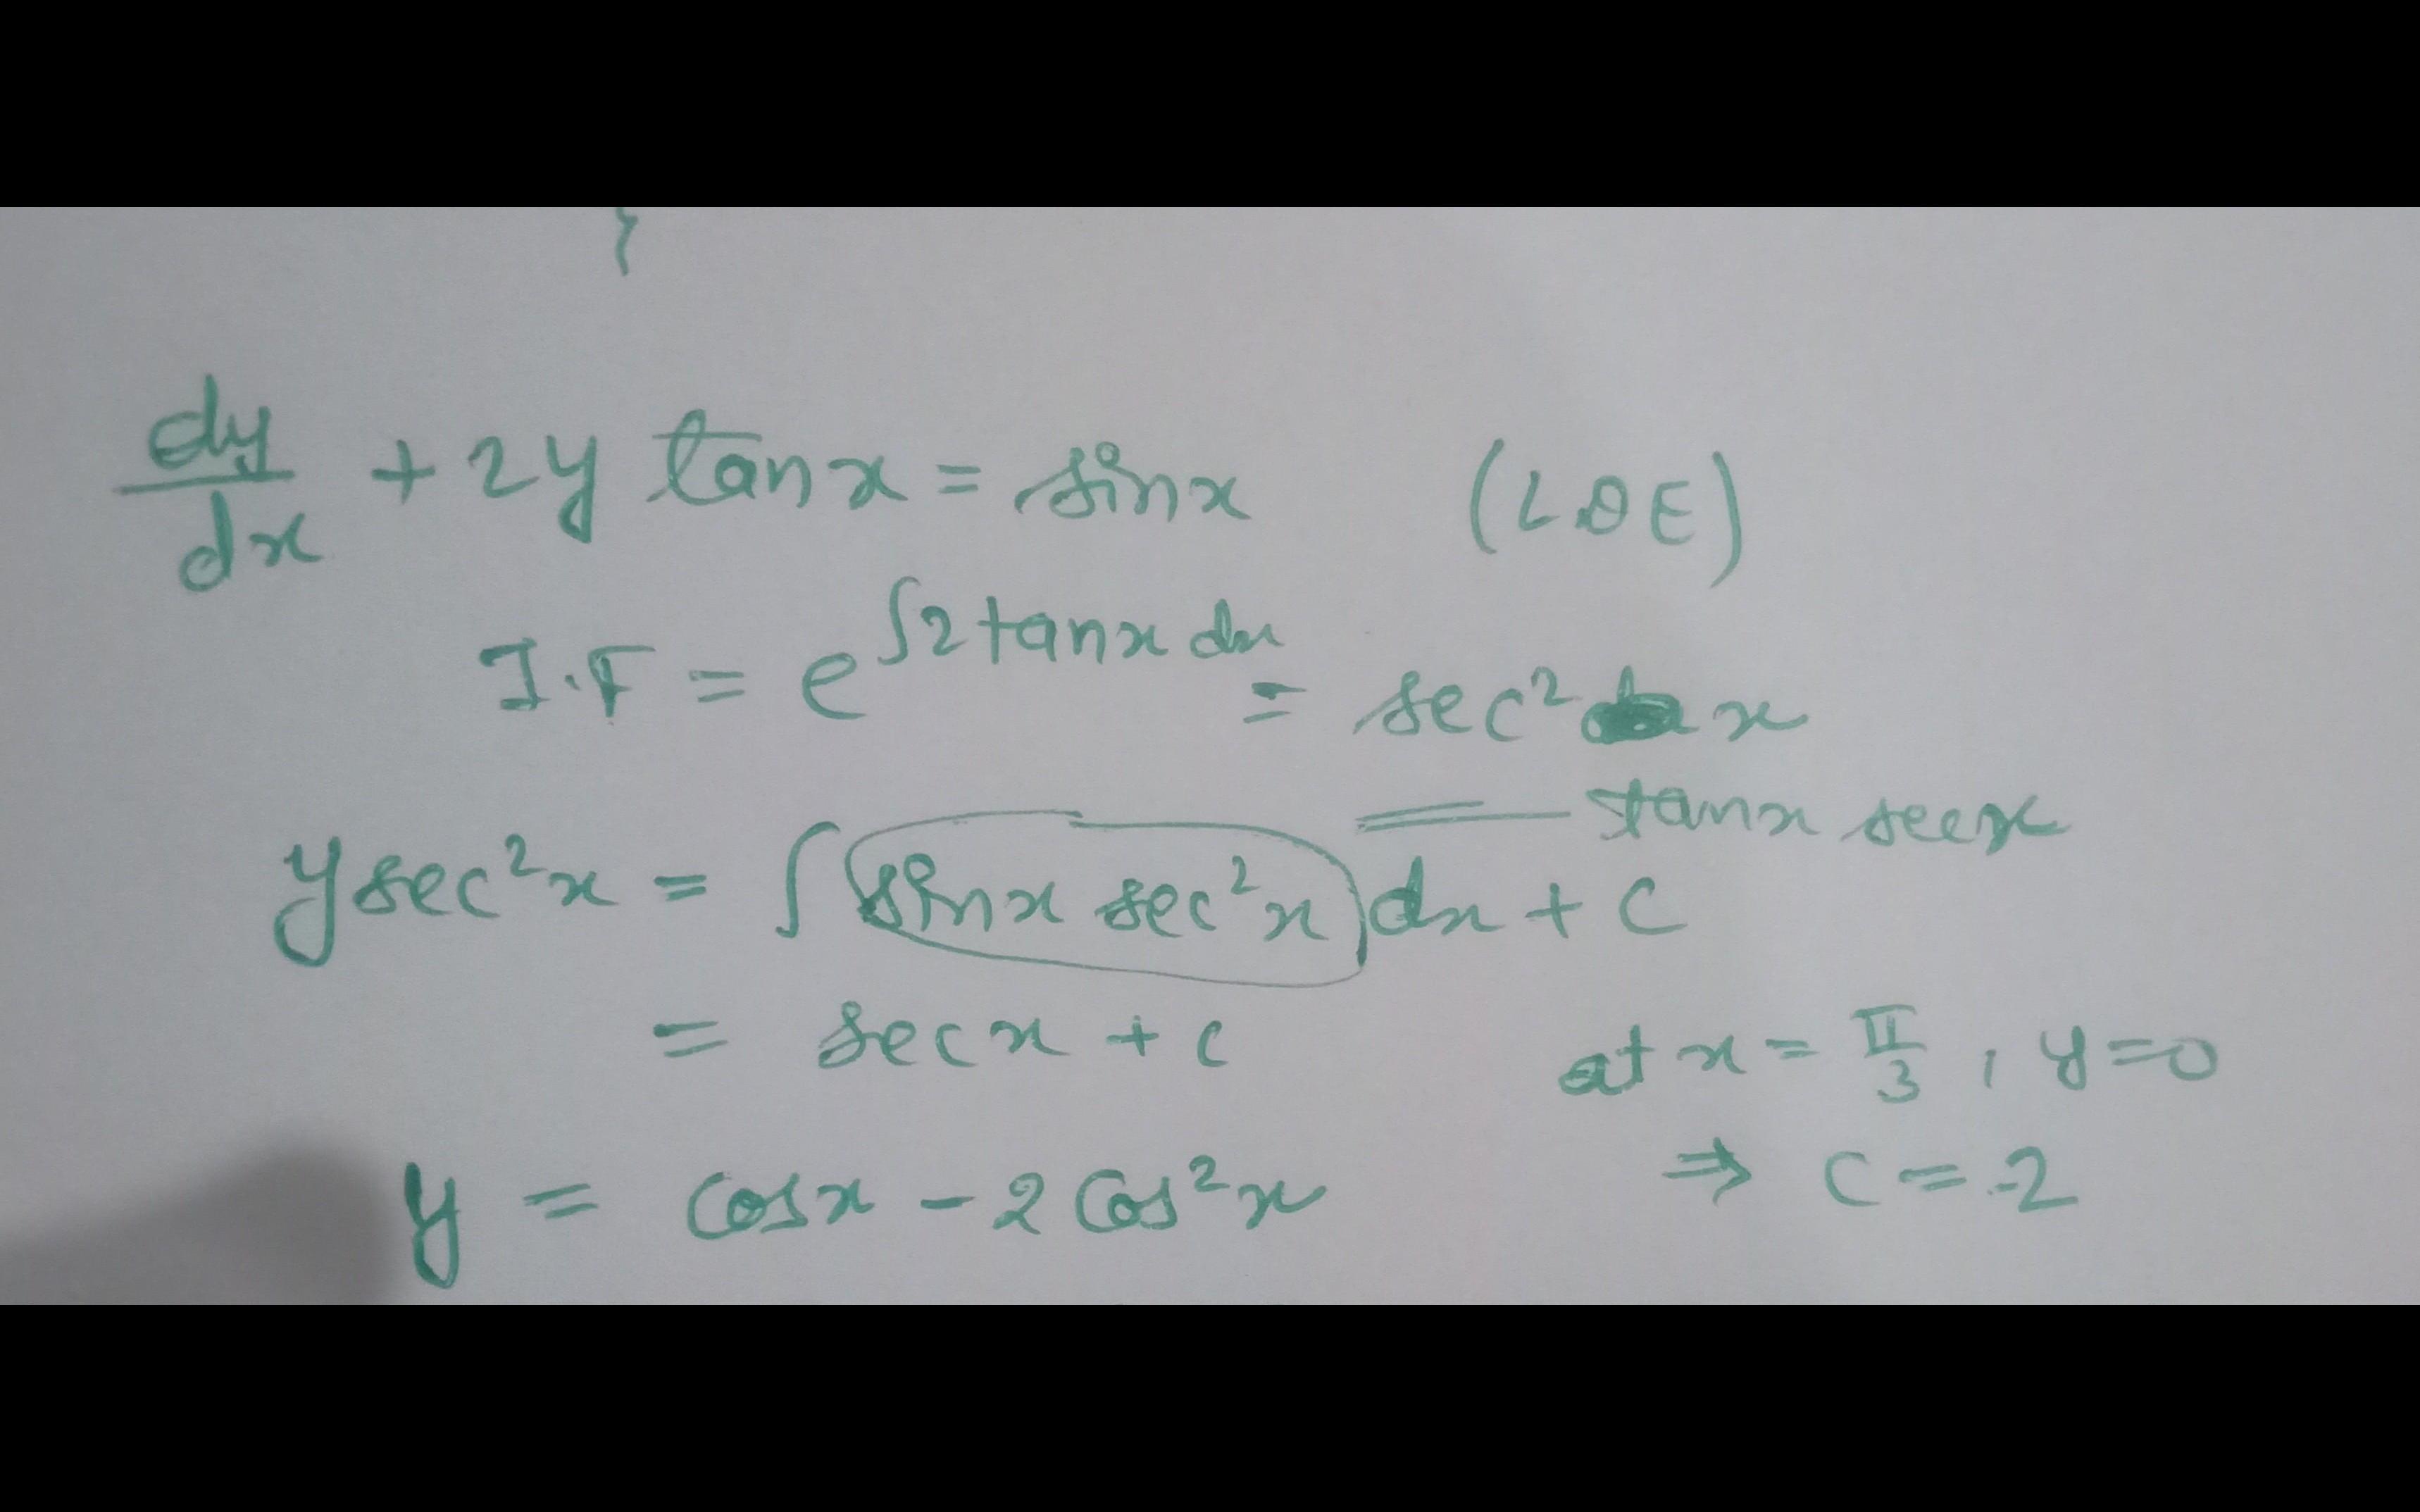 dy/dx + 2y tanx = sinx (LDE)
I.F = e^∫2tanx dx = sec²x
= tanx secx
ysec²x = ∫ sinx sec²x dx + c
= secx + c
at x = π/3, y=0
⇒ c = -2
y = cosx - 2cos²x